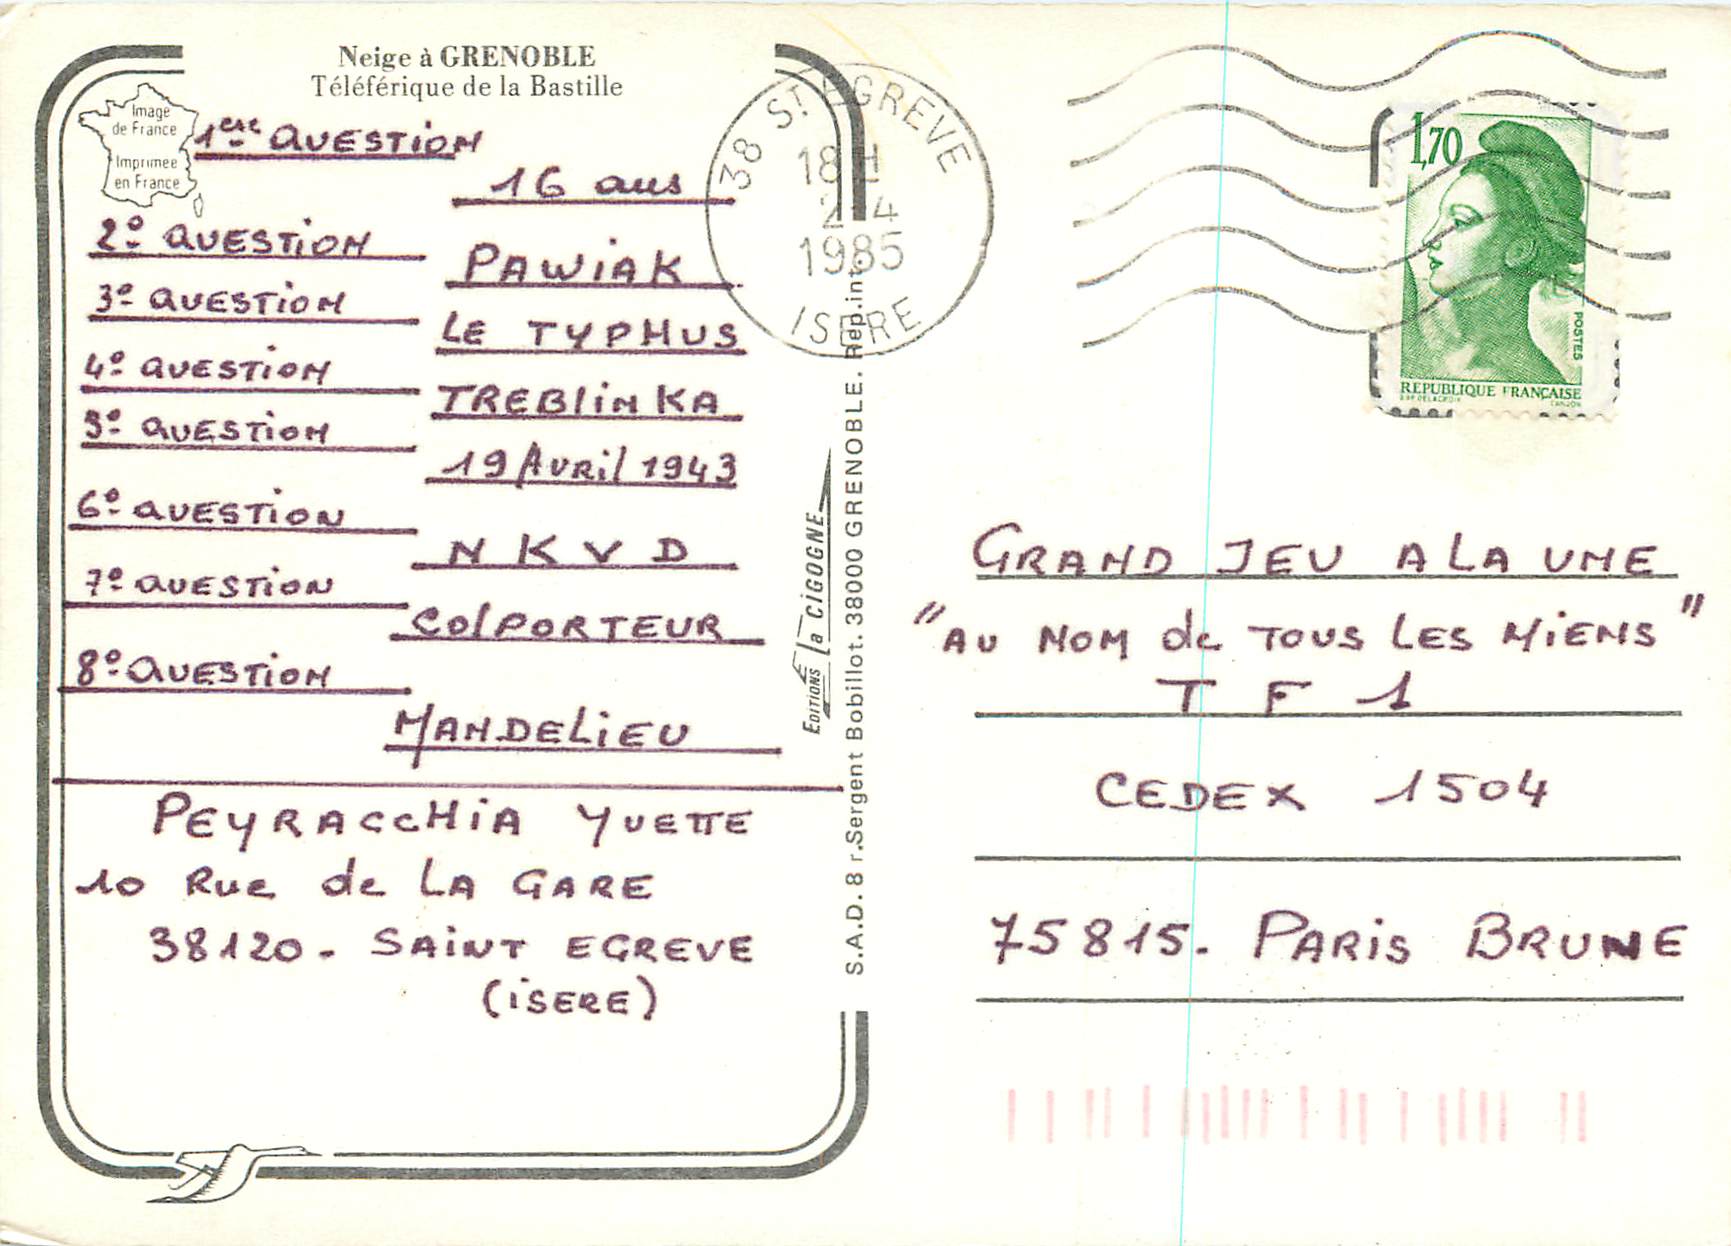 Neige à GRENOBLE
Téléférique de la Bastille
Image
de France
Imprimée
en France
1ere QUESTION
16 ans
2º QUESTION
PAWIAK
3º QUESTION
LE TYPHUS
4º QUESTION
TREBLINKA
5º QUESTION
19 Avril 1943
6º QUESTION
N K V D
7º QUESTION
COLPORTEUR
8º QUESTION
MANDELIEU
PEYRACCHIA YVETTE
10 Rue de LA GARE
38120 - SAINT EGREVE
(ISERE)
EDITIONS la CIGOGNE
S.A.D. 8 r. Sergent Bobillot. 38000 GRENOBLE. Rep. int.
38 ST EGREVE
18H
2-4
1985
ISERE
1,70
POSTES
REPUBLIQUE FRANÇAISE
GRAND JEU A LA UNE
"AU NOM de TOUS LES MIENS"
T F 1
CEDEX 1504
75815 - PARIS BRUNE